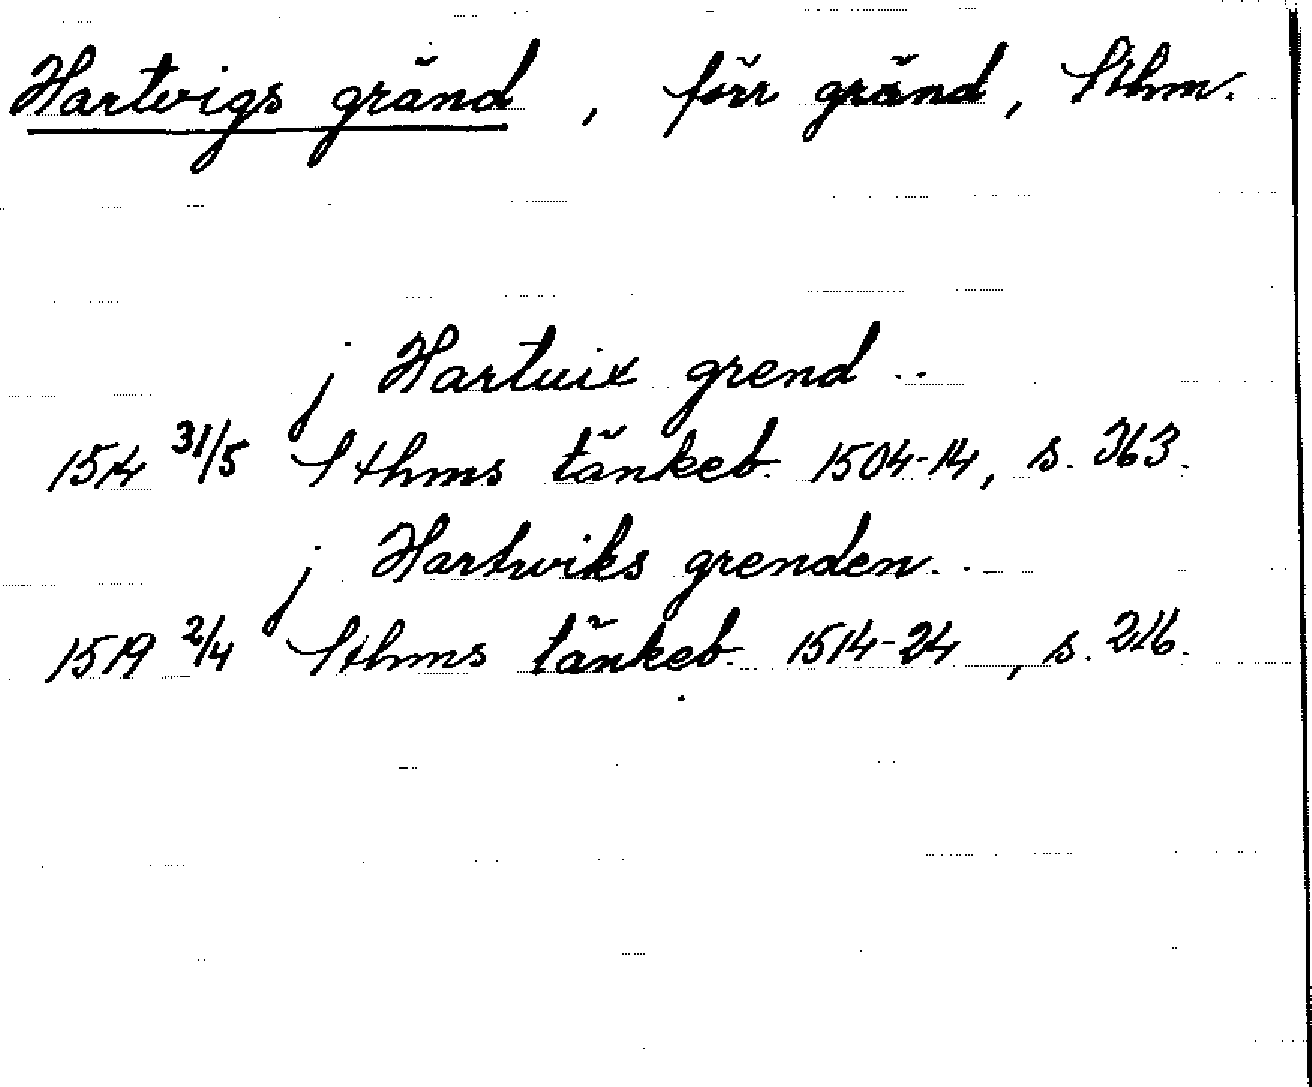 Hartvigs gränd, förr gränd, Sthm.
j Hartuix grend ..
1514 31/5 Sthms tänkeb. 1504-14, s. 363.
j Hartwiks grenden...
1519 2/4 Sthms tänkeb. 1514-24, s. 216.